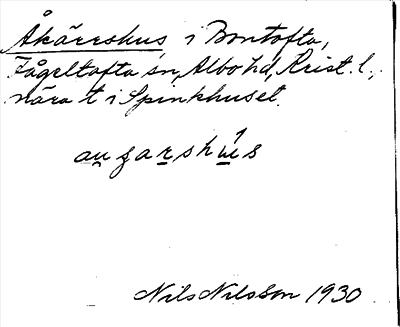 Åkärrshus i Bontofta,
Fågeltofta sn, Albo hd, Krist. l.,
nära t i Spinkhuset.
au̯ʒarshu̲s
Nils Nilsson 1930